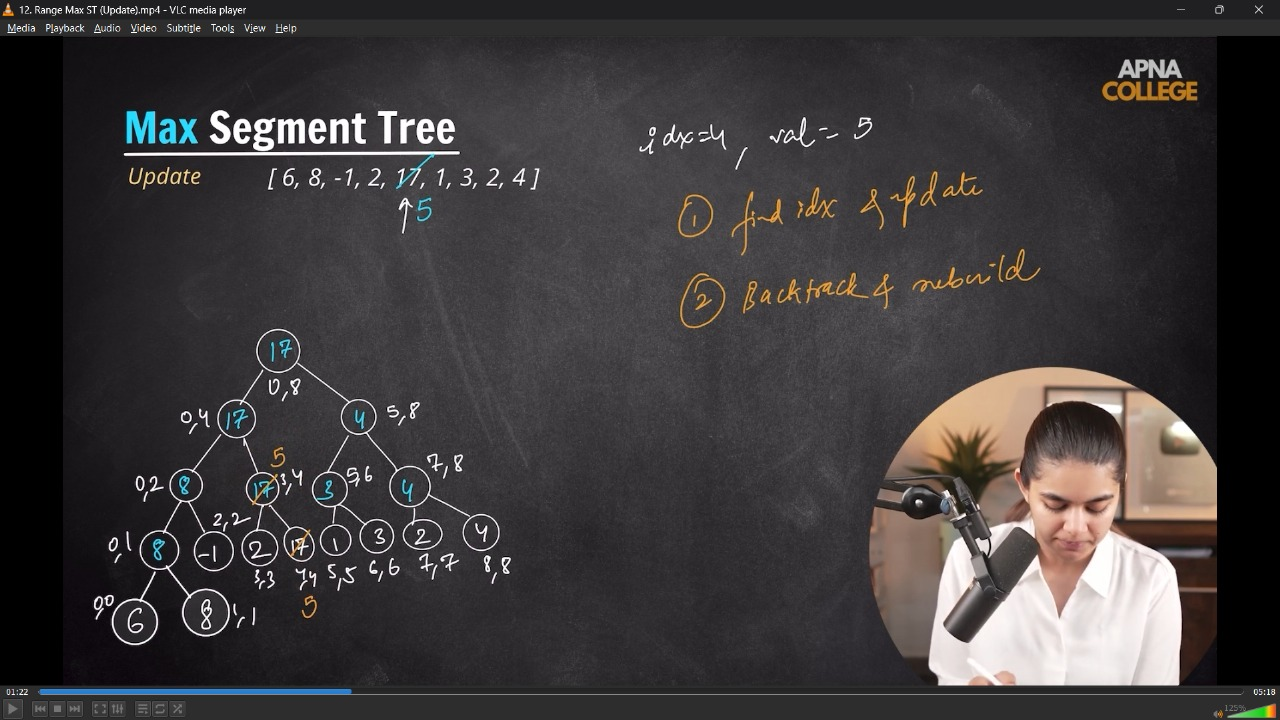 12. Range Max ST (Update).mp4 - VLC media player
Media Playback Audio Video Subtitle Tools View Help
APNA
COLLEGE
Max Segment Tree
idx=4, val=5
Update [ 6, 8, -1, 2, 17, 1, 3, 2, 4 ]
5
① find idx & update
② Backtrack & rebuild
17
0,8
0,4 17 4 5,8
5
0,2 8 17 3,4 3 5,6 4 7,8
2,2
0,1 8 -1 2 17 1 3 2 4
3,3 4,4 5,5 6,6 7,7 8,8
5
0,0 6 8 1,1
01:22 05:18
125%